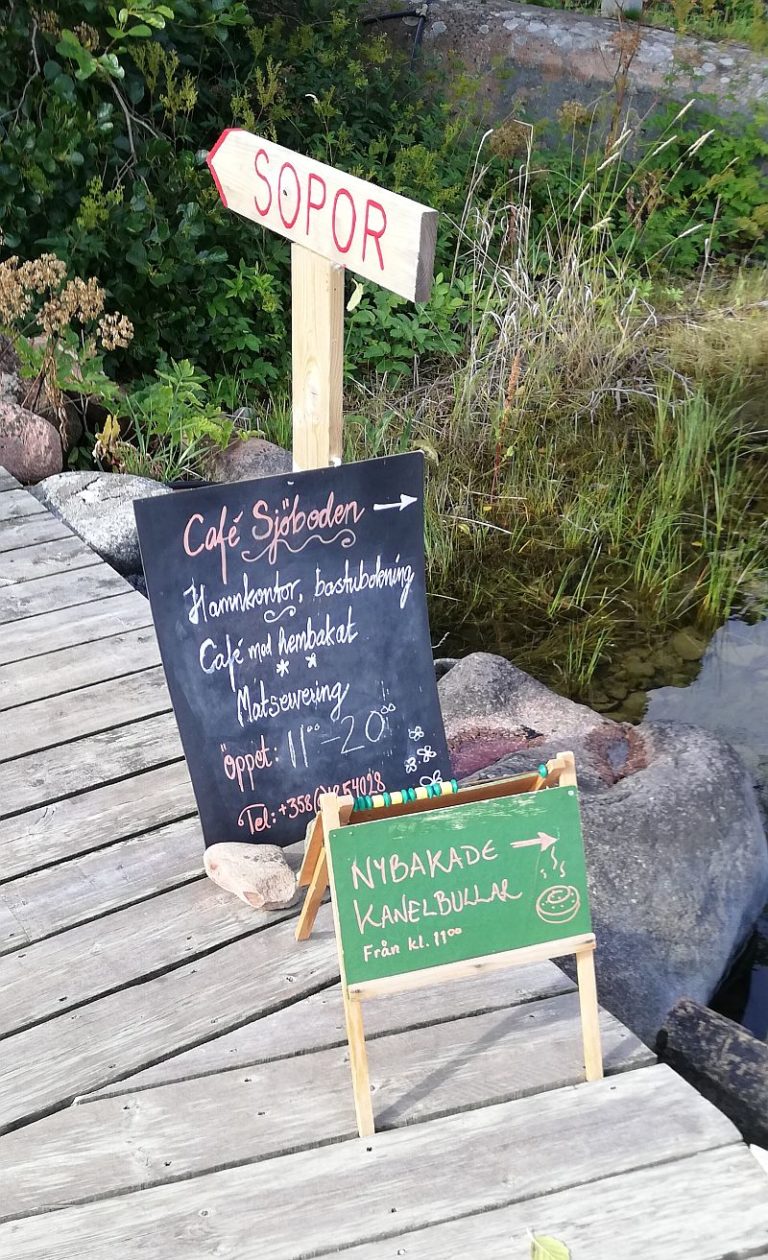 SOPOR
Café Sjöboden
Hamnkontor, bastubokning
Café med hembakat
Matservering
Öppet: 11⁰⁰-20⁰⁰
Tel: +358
NYBAKADE
KANELBULLAR
Från kl. 11⁰⁰